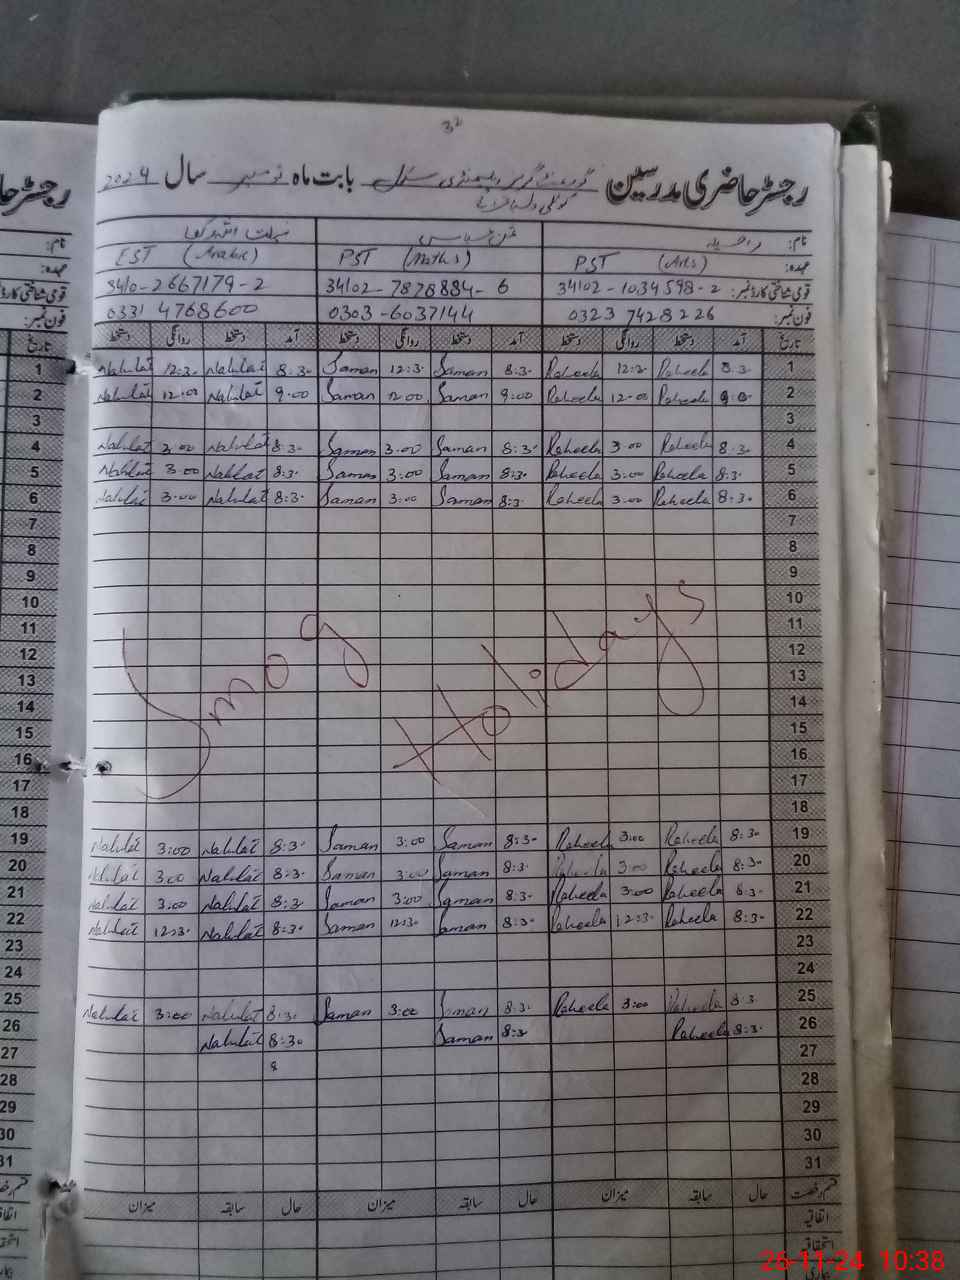 32
رجسٹر حاضری مدرسین گورنمنٹ گرلز سکول بابت ماہ نومبر سال 2024
نام: راحیلہ
عہدہ: PST (Arts) PST (Maths) EST (Arabic)
قومی شناختی کارڈ نمبر: 34102-1034598-2 34102-7878884-6 3410-2667179-2
فون نمبر: 0323 7428226 0303-6037144 0331 4768600
تاریخ آمد دستخط روانگی دستخط آمد دستخط روانگی دستخط آمد دستخط روانگی دستخط
1 8.3- Raheela 12:3- Raheela 8:3- Saman 12:3- Saman 8:3- Nahilat 12:3- Nahilat
2 9.0- Raheela 12-00 Raheela 9:00 Saman 12.00 Saman 9.00 Nahilat 12.00 Nahilat
3
4 8.3- Raheela 3.00 Raheela 8:3- Saman 3.00 Saman 8:3- Nahilat 3.00 Nahilat
5 8:3- Raheela 3:00 Raheela 8:3- Saman 3:00 Saman 8:3- Nahilat 3.00 Nahilat
6 8:3- Raheela 3:00 Raheela 8:3 Saman 3:00 Saman 8:3- Nahilat 3:00 Nahilat
7
8
9
10
11
12
13
14
15
16
17
18
Smog Holidays
19 8:3- Raheela 3:00 Raheela 8:3- Saman 3:00 Saman 8:3- Nahilat 3:00 Nahilat
20 8:3- Raheela 3:00 Raheela 8:3- Saman 3:00 Saman 8:3- Nahilat 3:00 Nahilat
21 8:3- Raheela 3:00 Raheela 8:3- Saman 3:00 Saman 8:3 Nahilat 3:00 Nahilat
22 8:3- Raheela 12:3- Raheela 8:3- Saman 12:3- Saman 8:3- Nahilat 12:3- Nahilat
23
24
25 8:3 Raheela 3:00 Raheela 8:3- Saman 3:00 Saman 8:3- Nahilat 3:00 Nahilat
26 8:3- Raheela 8:3- Saman 8:30 Nahilat
27 8
28
29
30
31
قسم رخصت حال سابقہ میزان حال سابقہ میزان حال سابقہ میزان
اتفاقیہ
استحقاقی
26-11-24 10:38